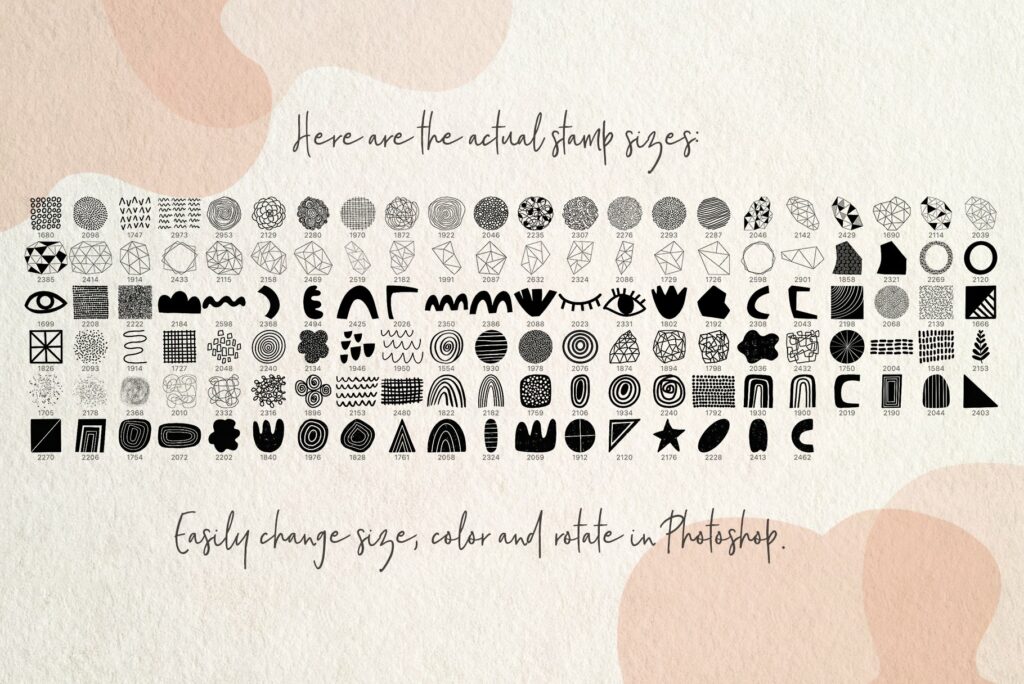 Here are the actual stamp sizes:
1680 2098 1747 2973 2953 2129 2280 1970 1872 1922 2046 2235 2307 2276 2293 2287 2046 2142 2429 1690 2114 2039
2385 2414 1914 2433 2115 2158 2469 2519 2182 1991 2087 2632 2324 2086 1739 1726 2598 2901 1858 2321 2269 2120
1699 2208 2222 2184 2598 2358 2494 2425 2026 2350 2386 2088 2023 2331 1802 2192 2308 2043 2198 2068 2139 1666
1826 2093 1914 1727 2048 2240 2134 1946 1950 1554 1930 1978 2076 1874 1894 1798 2036 2432 1750 2004 1584 2153
1705 2178 2368 2010 2332 2316 1896 2153 2480 1822 2182 1759 2106 1934 2240 1792 1930 1900 2019 2190 2044 2403
2270 2206 1754 2072 2202 1840 1976 1828 1761 2058 2324 2059 1912 2120 2176 2228 2413 2462
Easily change size, color and rotate in Photoshop.